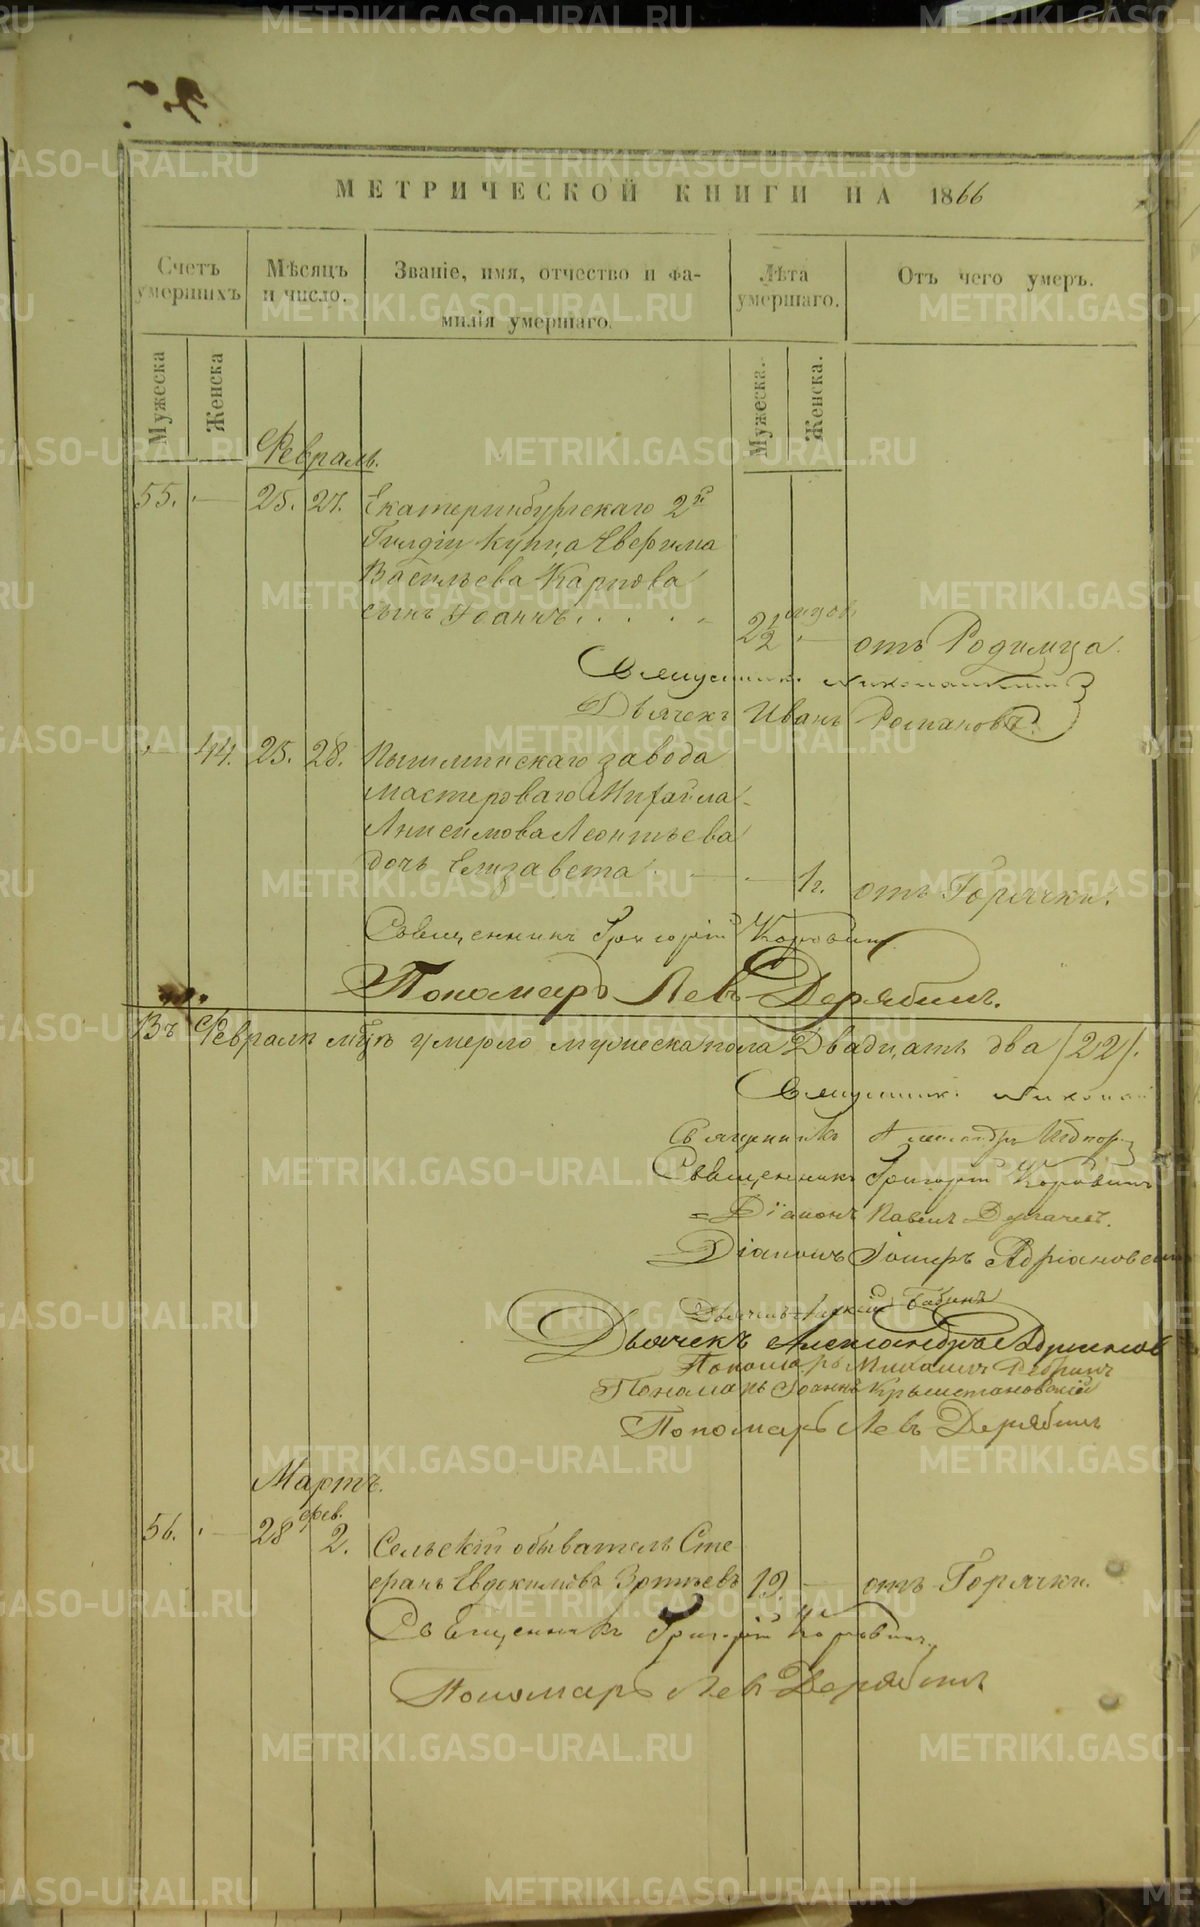 МЕТРИЧЕСКОЙ КНИГИ НА 1866
Счетъ умершихъ
Мѣсяцъ и число.
Званіе, имя, отчество и фа-
милія умершаго.
Лѣта умершаго.
Отъ чего умеръ.
Мужеска
Женска
Мужеска.
Женска.
Февраль.
55. — 25. 27. Екатеринбургскаго 2й
Гильдіи купца Еверима
Васильева Карпова
сынъ Іоаннъ. . . . . 2½ — отъ Родимца.
Священникъ
Дьячекъ Иванъ Романовъ.
— 44. 25. 28. Пышминскаго завода
мастероваго Михаила
Анисимова Леонтьева
дочь Елизавета — — 1 г. отъ Горячки.
Священникъ Григорій Коровинъ
Пономарь Левъ Дерябинъ.
Въ Февралѣ мцѣ умерло мужеска пола Двадцать два /22/.
Священникъ Николай
Священникъ Александръ
Священникъ Григорій Коровинъ
Діаконъ Павелъ
Діаконъ Іосифъ Адріановскій
Дьячекъ Бабинъ
Дьячекъ Александръ
Пономарь Михаилъ
Пономарь Іоаннъ
Пономарь Левъ Дерябинъ
Мартъ.
56. — 28 фев. 2. Сельскій обыватель Сте
фанъ Евдокимовъ 19 — отъ Горячки.
Священникъ Григорій Коровинъ.
Пономарь Левъ Дерябинъ
METRIKI.GASO-URAL.RU